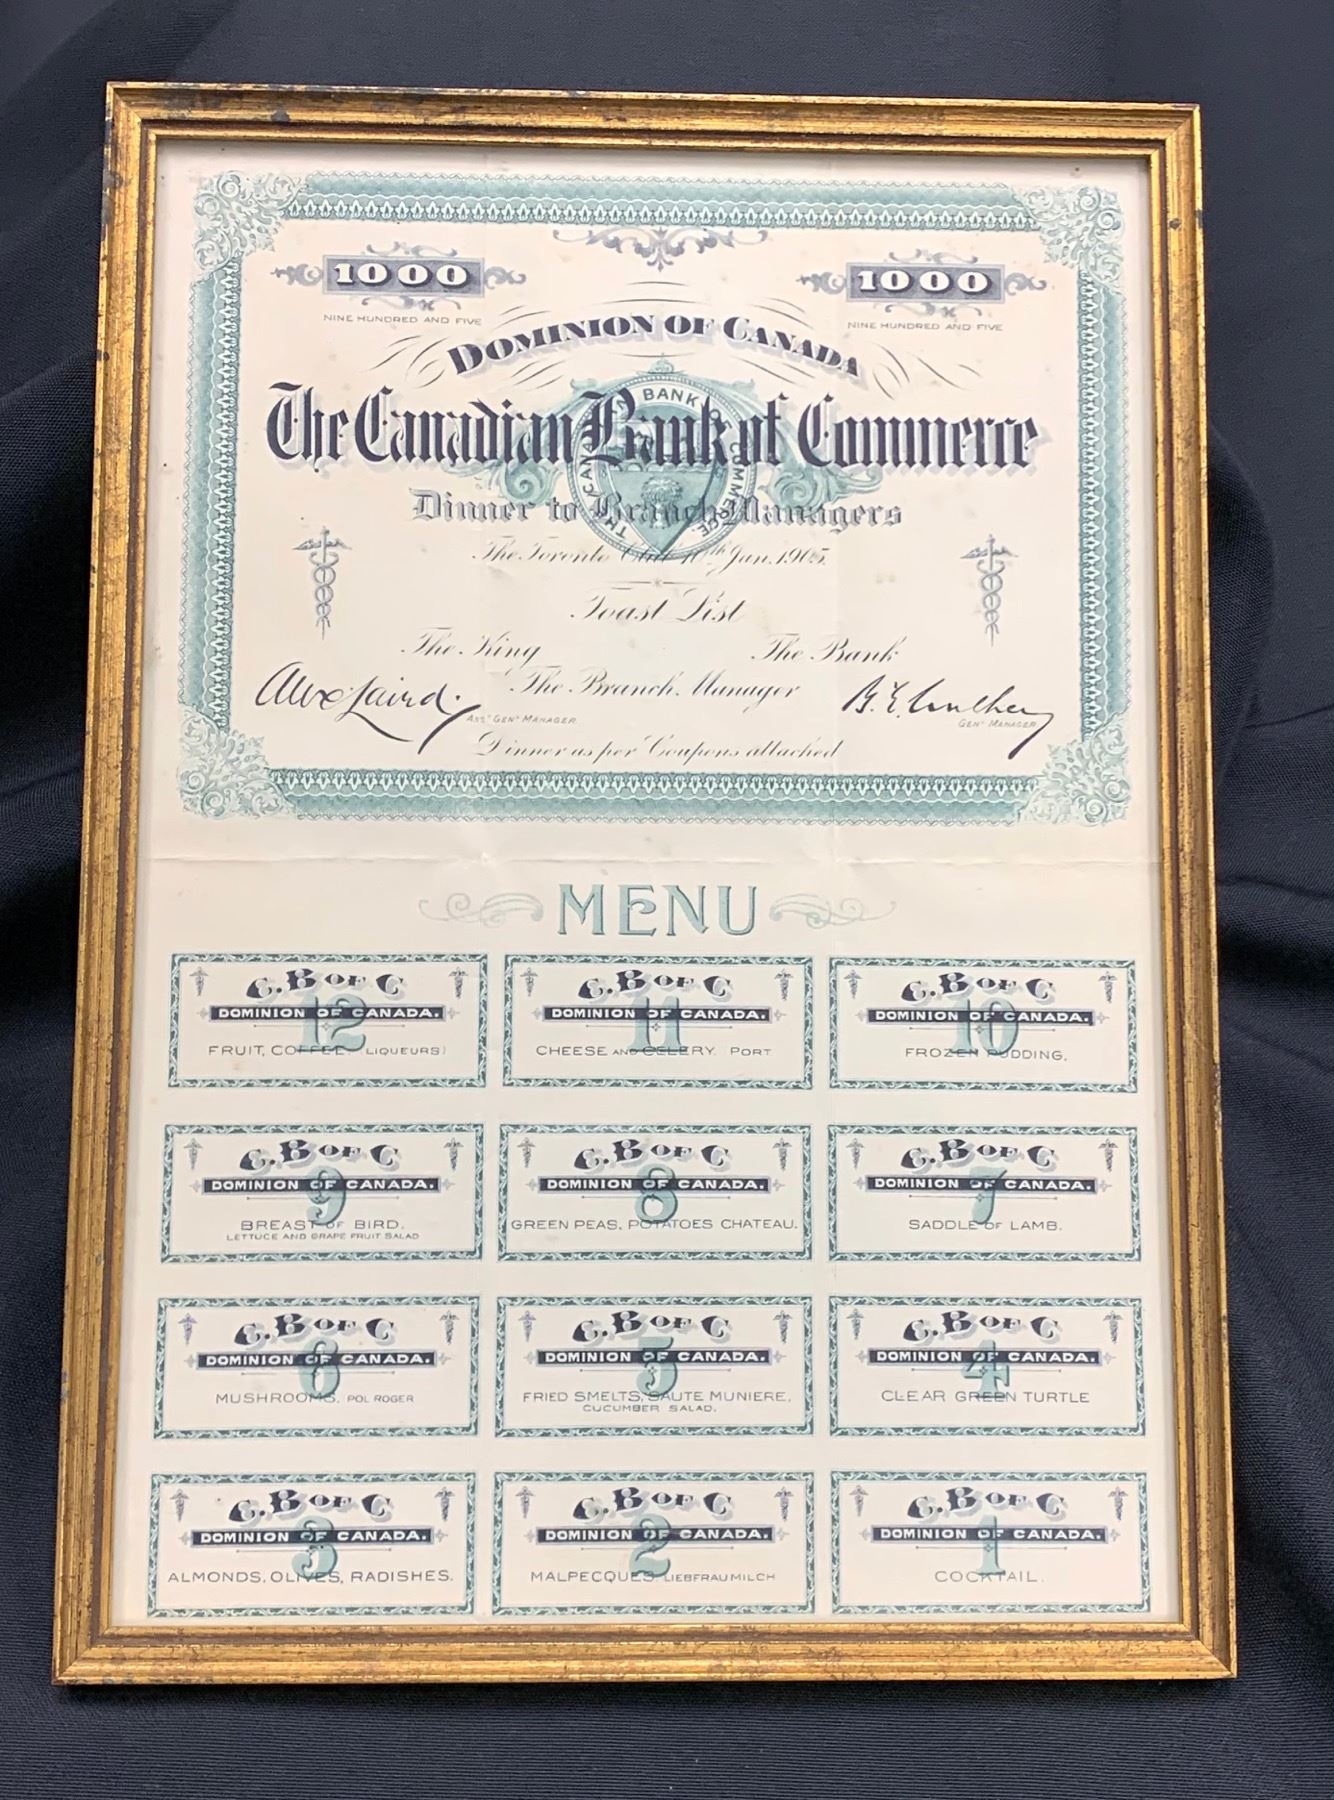 1000 1000
NINE HUNDRED AND FIVE NINE HUNDRED AND FIVE
DOMINION OF CANADA
The Canadian Bank of Commerce
THE CANADIAN BANK OF COMMERCE
Dinner to Branch Managers
The Toronto Club Jan. 1905.
Toast List
The King The Bank
The Branch Manager
Alex Laird. B. E. Walker
ASS'T GEN'L MANAGER. GEN'L MANAGER.
Dinner as per Coupons attached
MENU
C. B OF C C. B OF C C. B OF C
12 11 10
DOMINION OF CANADA. DOMINION OF CANADA. DOMINION OF CANADA.
FRUIT, COFFEE. LIQUEURS) CHEESE AND CELERY. PORT FROZEN PUDDING.
C. B OF C C. B OF C C. B OF C
9 8 7
DOMINION OF CANADA. DOMINION OF CANADA. DOMINION OF CANADA.
BREAST OF BIRD. GREEN PEAS, POTATOES CHATEAU. SADDLE OF LAMB.
LETTUCE AND GRAPE FRUIT SALAD
C. B OF C C. B OF C C. B OF C
6 5 4
DOMINION OF CANADA. DOMINION OF CANADA. DOMINION OF CANADA.
MUSHROOMS. POL ROGER FRIED SMELTS, SAUTE MUNIERE, CLEAR GREEN TURTLE
CUCUMBER SALAD.
C. B OF C C. B OF C C. B OF C
3 2 1
DOMINION OF CANADA. DOMINION OF CANADA. DOMINION OF CANADA.
ALMONDS, OLIVES, RADISHES. MALPECQUES. LIEBFRAUMILCH COCKTAIL.